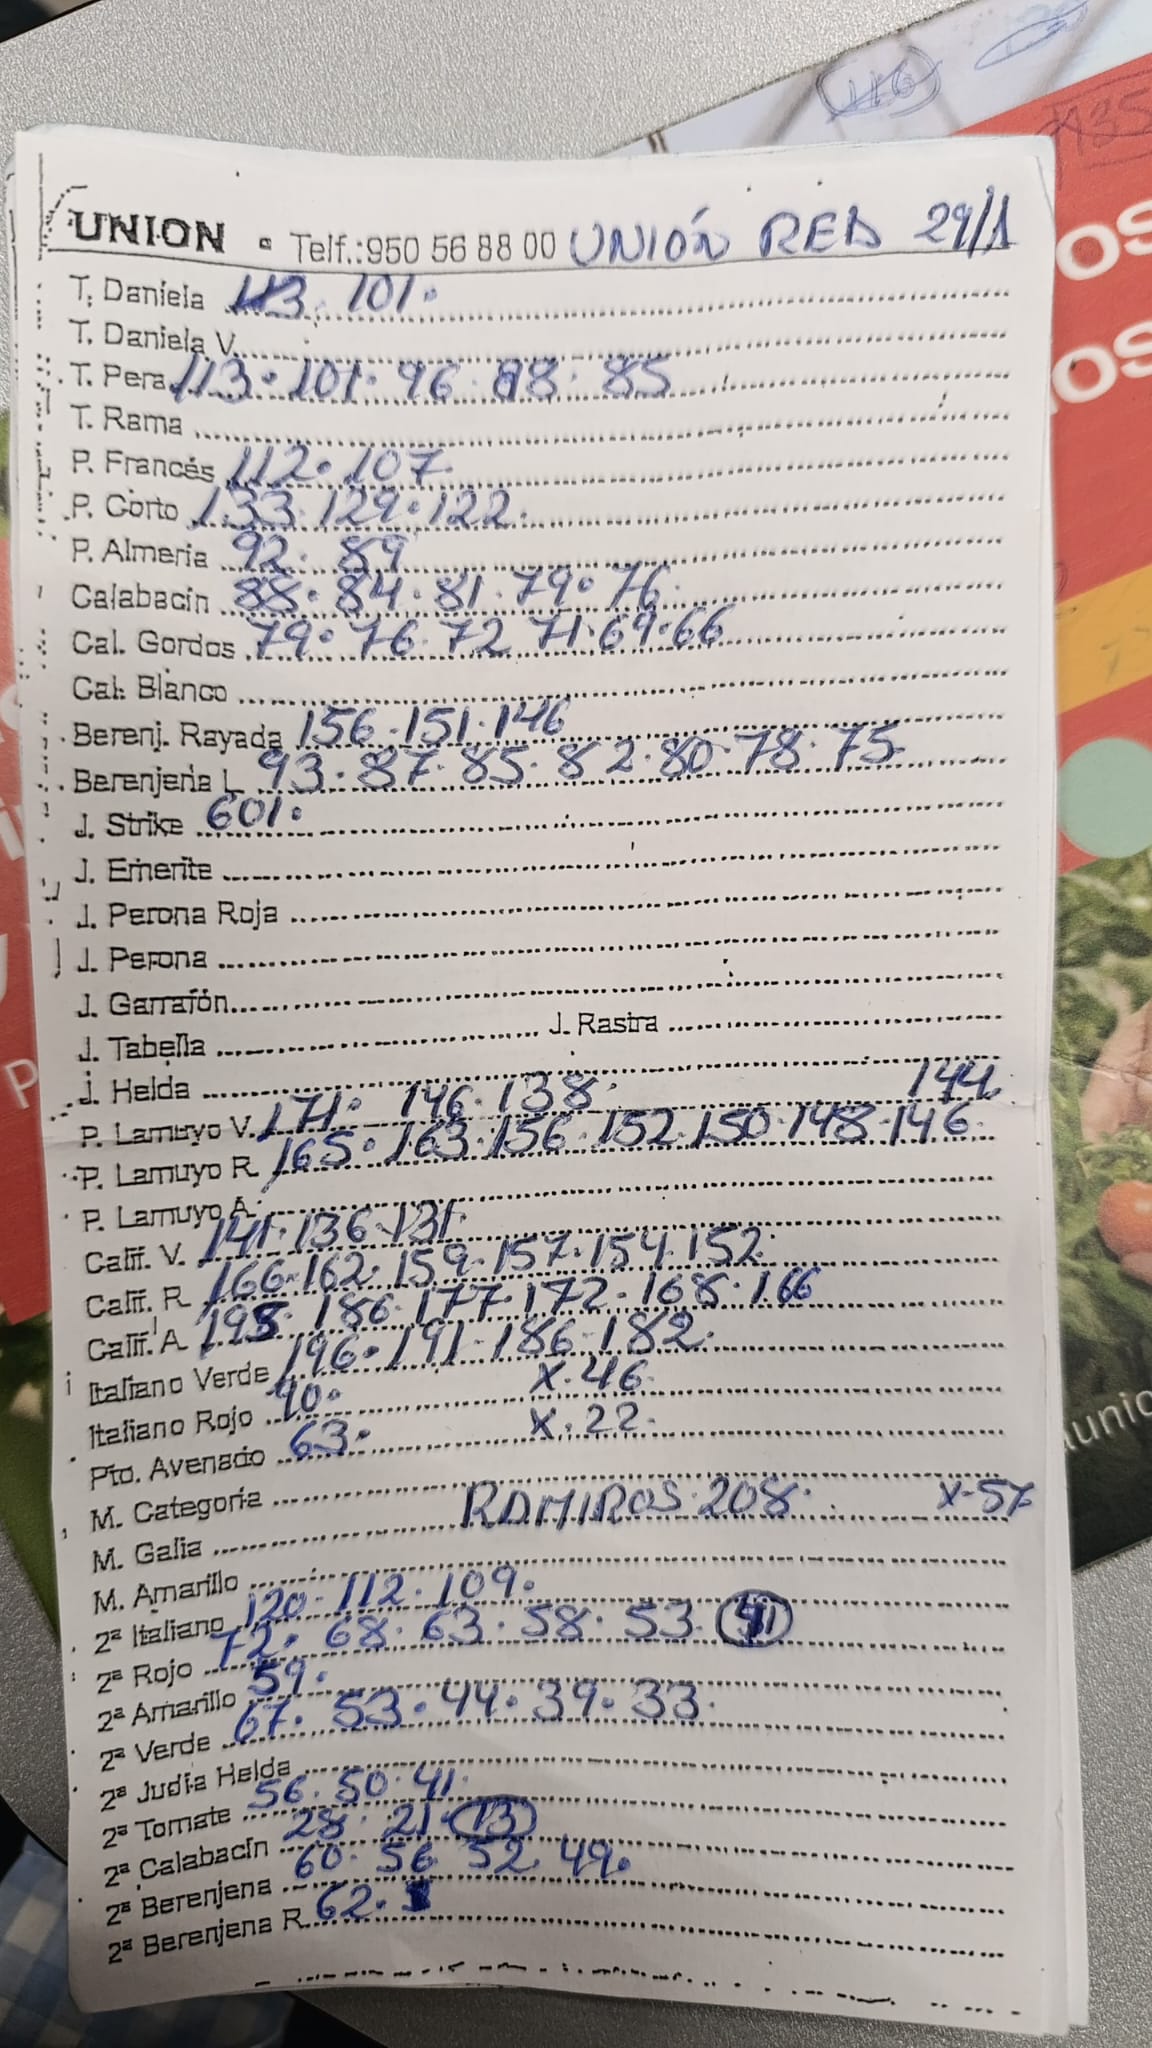 UNION • Telf.:950 56 88 00 UNIÓN RED 29/1
T. Daniela 113. 101.
T. Daniela V.
T. Pera 113. 101. 96. 88. 85
T. Rama
P. Francés 112. 107.
P. Corto 133. 129. 122.
P. Almeria 92. 89
Calabacín 88. 84. 81. 79. 76.
Cal. Gordos 79. 76. 72 71. 69. 66
Cal. Blanco
Berenj. Rayada 156. 151. 146
Berenjena L 93. 87. 85. 82. 80. 78. 75.
J. Strike 601.
J. Emerite
J. Perona Roja
J. Perona
J. Garrafón
J. Tabella J. Rastra
J. Helda
P. Lamuyo V. 171. 146. 138. 144.
P. Lamuyo R 165. 163. 156. 152. 150. 148. 146.
P. Lamuyo A.
Calif. V. 141. 136. 131.
Calif. R 166. 162. 159. 157. 154. 152.
Calif. A 195. 186. 177. 172. 168. 166
Italiano Verde 196. 191. 186. 182.
Italiano Rojo 90. X. 46.
Pto. Avenado 63. X. 22.
M. Categoría
M. Galia RAMIROS. 208. X-57
M. Amarillo
2ª Italiano 120. 112. 109.
2ª Rojo 72. 68. 63. 58. 53.
2ª Amarillo 59.
2ª Verde 67. 53. 44. 39. 33.
2ª Judía Helda
2ª Tomate 56. 50. 41.
2ª Calabacín 28. 21. 13
2ª Berenjena 60. 56 52. 49.
2ª Berenjena R 62.